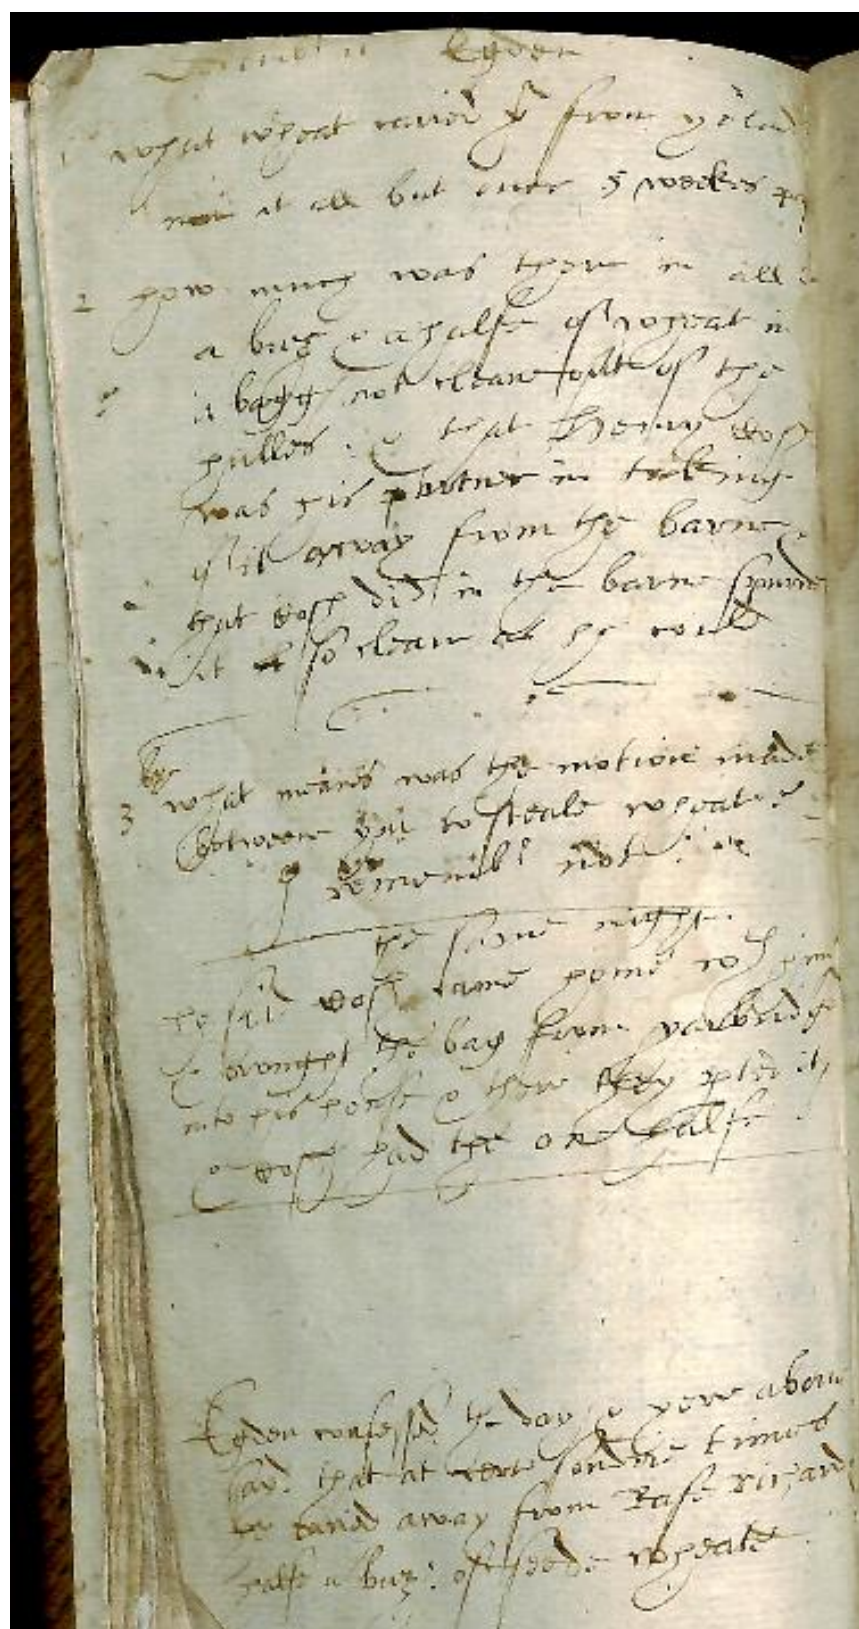 Egden
what wheat caried yu from yelad
not at all but once 5 weekes
2 how much was there in all
a buz & a halfe of wheat in
a bagg not cleane oute of the
hulles : & that Henry
was his partner in takinge
of it away from the barne
that did in the barne
it so cleane as he could
by
3 what means was the motion made
betweene you to steale wheate
I rememb not
the same night
he said came home wth him
& brought the bag from yarbridge
into his house & there they pted it,
& had the one halfe
Egden confessed the day & yere above
said that at sondrie times
he caried away from Rafe Richard
halfe a buz: of seede wheate